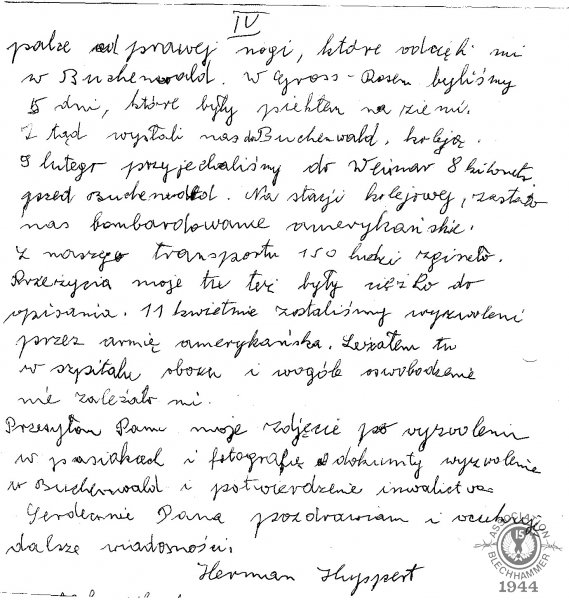 IV
palce od prawej nogi, które odcięli mi
w Buchenwald. W Gross-Rosen byliśmy
5 dni, które były piekłem na ziemi.
Z tąd wysłali nas do Buchenwald, koleją.
9 lutego przyjechaliśmy do Weimar 8 kilometr
przed Buchenwald. Na stacji kolejowej, zastało
nas bombardowanie amerykańskie.
Z naszego transportu 150 ludzi zgineło.
Przeżycia moje tu też były ciężko do
opisania. 11 kwietnie zostaliśmy wyzwoleni
przez armię amerykańska. Leżałem tu
w szpitalu obozu i wogóle oswobodzenie
nie zależało mi.
Przesyłam Panu moje zdjęcie po wyzwoleniu
w pasiakach i fotografię dokumty wyzwolenie
w Buchenwald i potwierdzenie inwalictwa
Serdecznie Pana pozdrawiam i oczekuję
dalsze wiadomości.
Herman Huppert
ASSOCIATION
BLECHHAMMER
1944